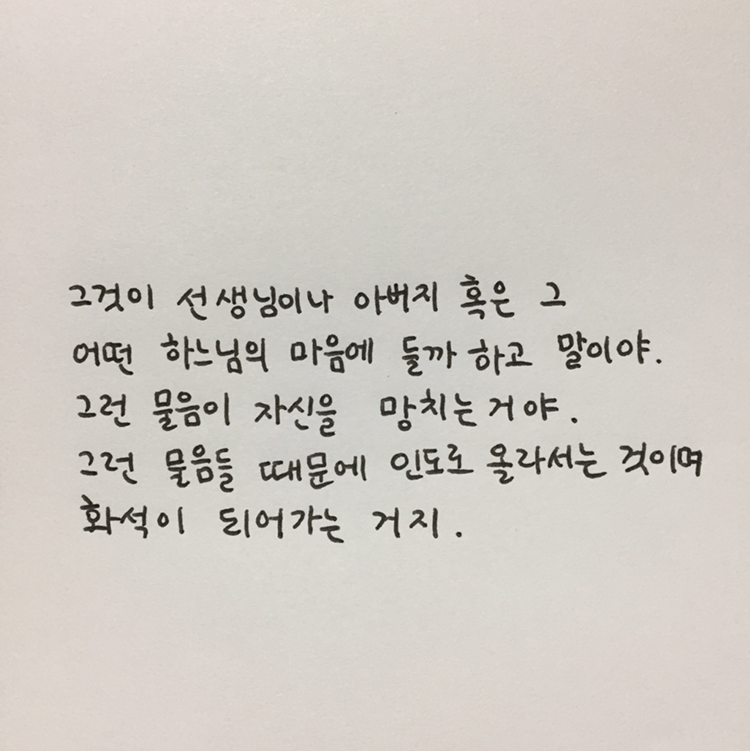 그것이 선생님이나 아버지 혹은 그
어떤 하느님의 마음에 들까 하고 말이야.
그런 물음이 자신을 망치는 거야.
그런 물음들 때문에 인도로 올라서는 것이며
화석이 되어가는 거지.